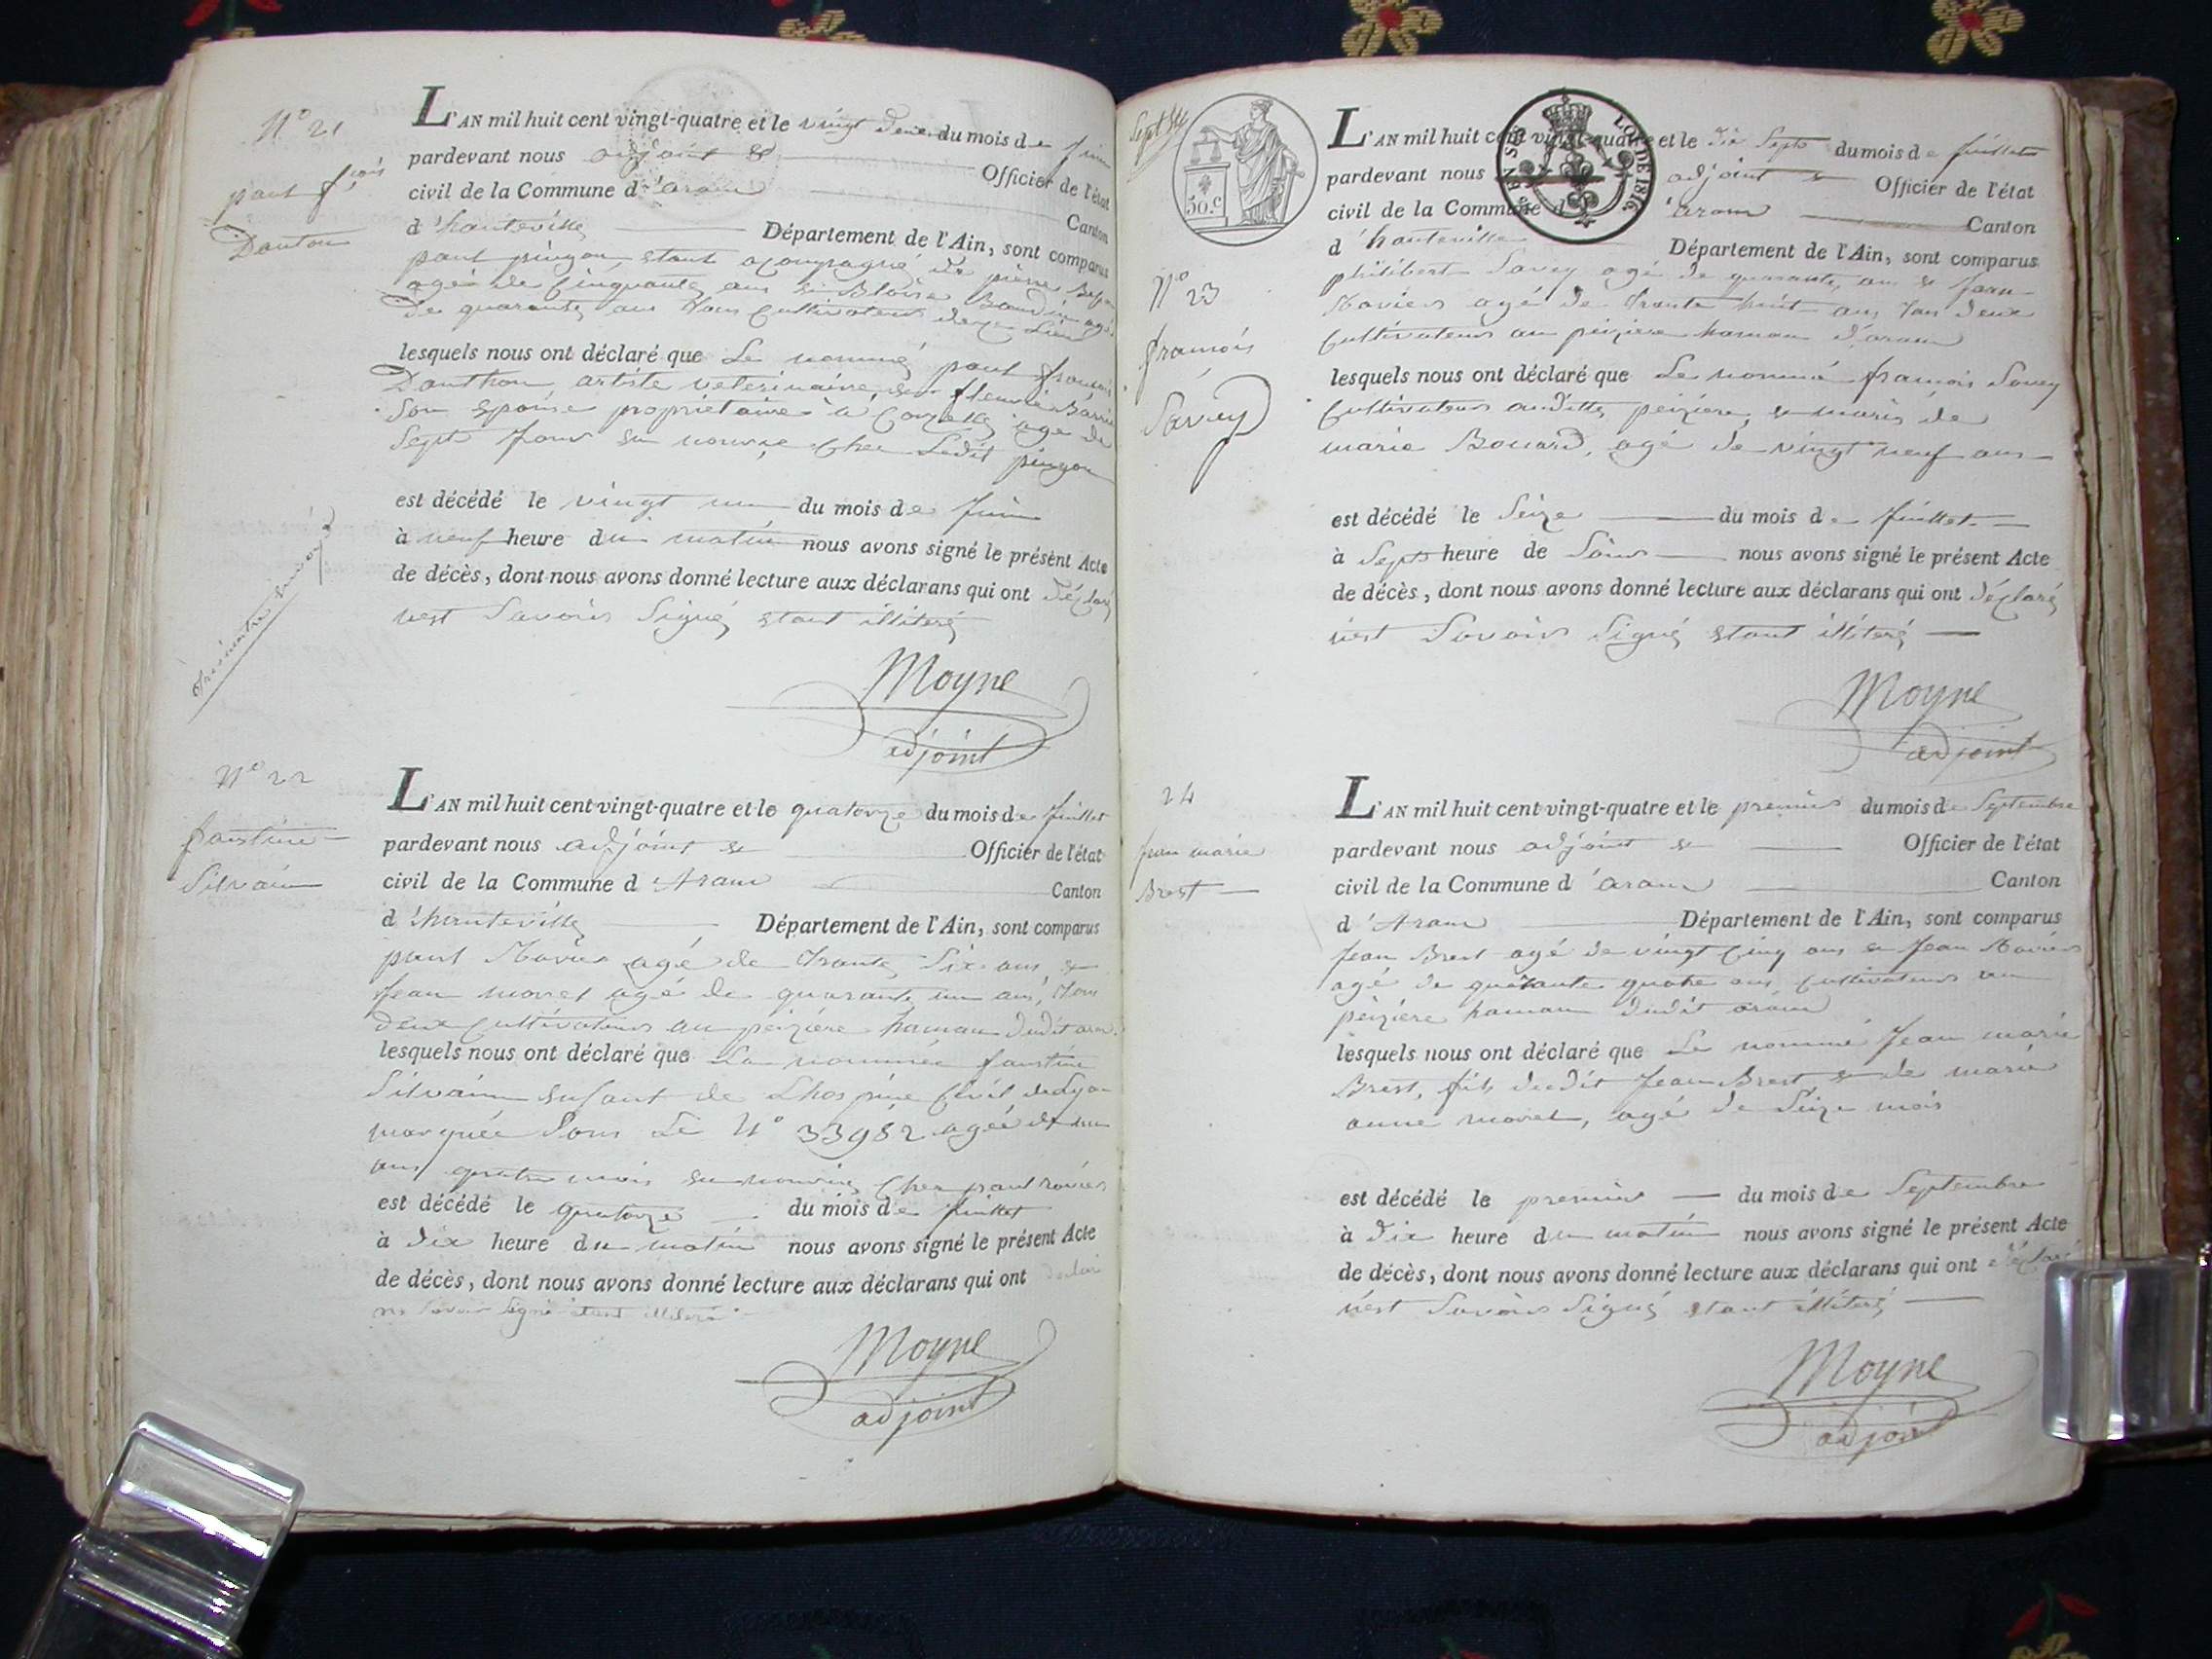 N° 21
paul f.çois
Danton
L'AN mil huit cent vingt-quatre et le vingt deux du mois de juin
pardevant nous adjoint & Officier de l'état
civil de la Commune d'aranc Canton
d'hauteville Département de l'Ain, sont comparus
paul pingon, étant acompagné de pierre
agé de Cinquante ans & Blaise Baudin agé
De quarante ans tous Cultivateurs
lesquels nous ont déclaré que Le nommé paul françois
Danthon artiste veterinaire, & fleurie
Son épouse propriétaire à agé de
Sept jours en nourice chez Ledit pingon
est décédé le vingt un du mois de juin
à neuf heure du matin nous avons signé le présent Acte
de décès, dont nous avons donné lecture aux déclarans qui ont déclaré
nest Savoir Signé étant illiteré
Moyne
adjoint
N° 22
faustine
Silvain
L'AN mil huit cent vingt-quatre et le quatorze du mois de juillet
pardevant nous adjoint & Officier de l'état
civil de la Commune d'Aranc Canton
d'hauteville Département de l'Ain, sont comparus
paul Ravier agé de trante Six ans, &
Jean moret agé de quarante un ans, tous
deux Cultivateurs au peizière hamau dudit aran
lesquels nous ont déclaré que La nommée faustine
Silvain enfant de Lhospice Civil de Lyon
marquée Sous Le N° 33982 agée de un
ans quatre mois en nourice chez paul ravier
est décédé le quatorze du mois de juillet
à dix heure du matin nous avons signé le présent Acte
de décès, dont nous avons donné lecture aux déclarans qui ont déclaré
ne savoir signé étant illiteré
Moyne
adjoint
Sept
50.c
LOI DE 1816.
L'AN mil huit cent vingt-quatre et le dix Sept du mois de juillet
pardevant nous adjoint & Officier de l'état
civil de la Commune d'aranc Canton
d'hauteville Département de l'Ain, sont comparus
N° 23
francois
Savey
philibert Savey agé de quarante, ans & Jean
Raviers agé de trante huit ans tous deux
Cultivateurs au peizière hamau d'aranc
lesquels nous ont déclaré que Le nommé francois Savey
Cultivateur audit peizière, & maris de
marie Bouard, agé de vingt neuf ans
est décédé le Seize du mois de juillet
à Sept heure de Soir nous avons signé le présent Acte
de décès, dont nous avons donné lecture aux déclarans qui ont déclaré
nest Savoir Signé étant illiteré
Moyne
adjoint
24
jean marie
Brest
L'AN mil huit cent vingt-quatre et le premier du mois de Septembre
pardevant nous adjoint & Officier de l'état
civil de la Commune d'aranc Canton
d'Aranc Département de l'Ain, sont comparus
Jean Brest agé de vingt Cinq ans & Jean Raviers
agé de quarante quatre ans, Cultivateurs au
peizière hamau dudit aranc
lesquels nous ont déclaré que Le nommé Jean marie
Brest, fils dudit Jean Brest, & de marie
anne moret, agé de Seize mois
est décédé le premier du mois de Septembre
à dix heure du matin nous avons signé le présent Acte
de décès, dont nous avons donné lecture aux déclarans qui ont déclaré
nest Savoir Signé étant illiteré
Moyne
adjoint